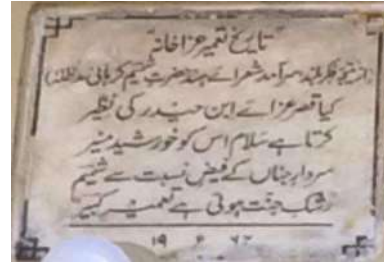 تاریخ تعمیر عزاخانہ
(از نتیجۂ فکر بلند سرآمد شعرائے ہند حضرت شمیم کرہانی مدظلہ)
کیا قصر عزائے ابن حیدر کی نظیر
کرتا ہے سلام اس کو خورشید منیر
سردار جناں کے فیض نسبت سے شمیم
رشک جنت ہوئی ہے تعمیر کبیر
۱۹ ۶ ۶۲